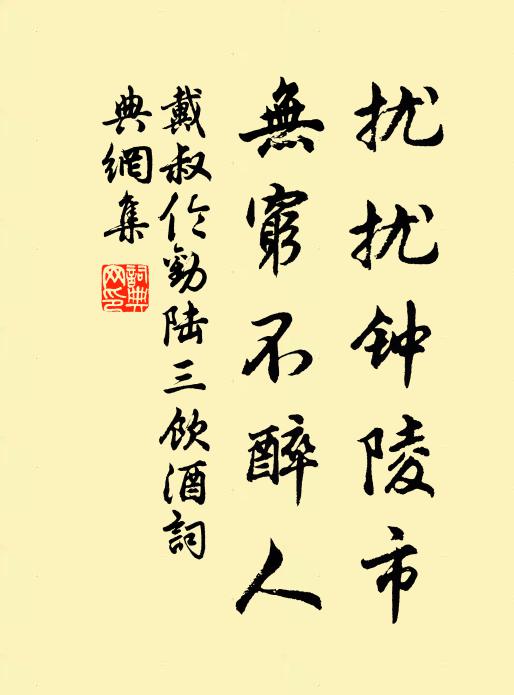 扰扰钟陵市
無窮不醉人
戴叔伦勸陆三飲酒詞
典網集
詞典
网印